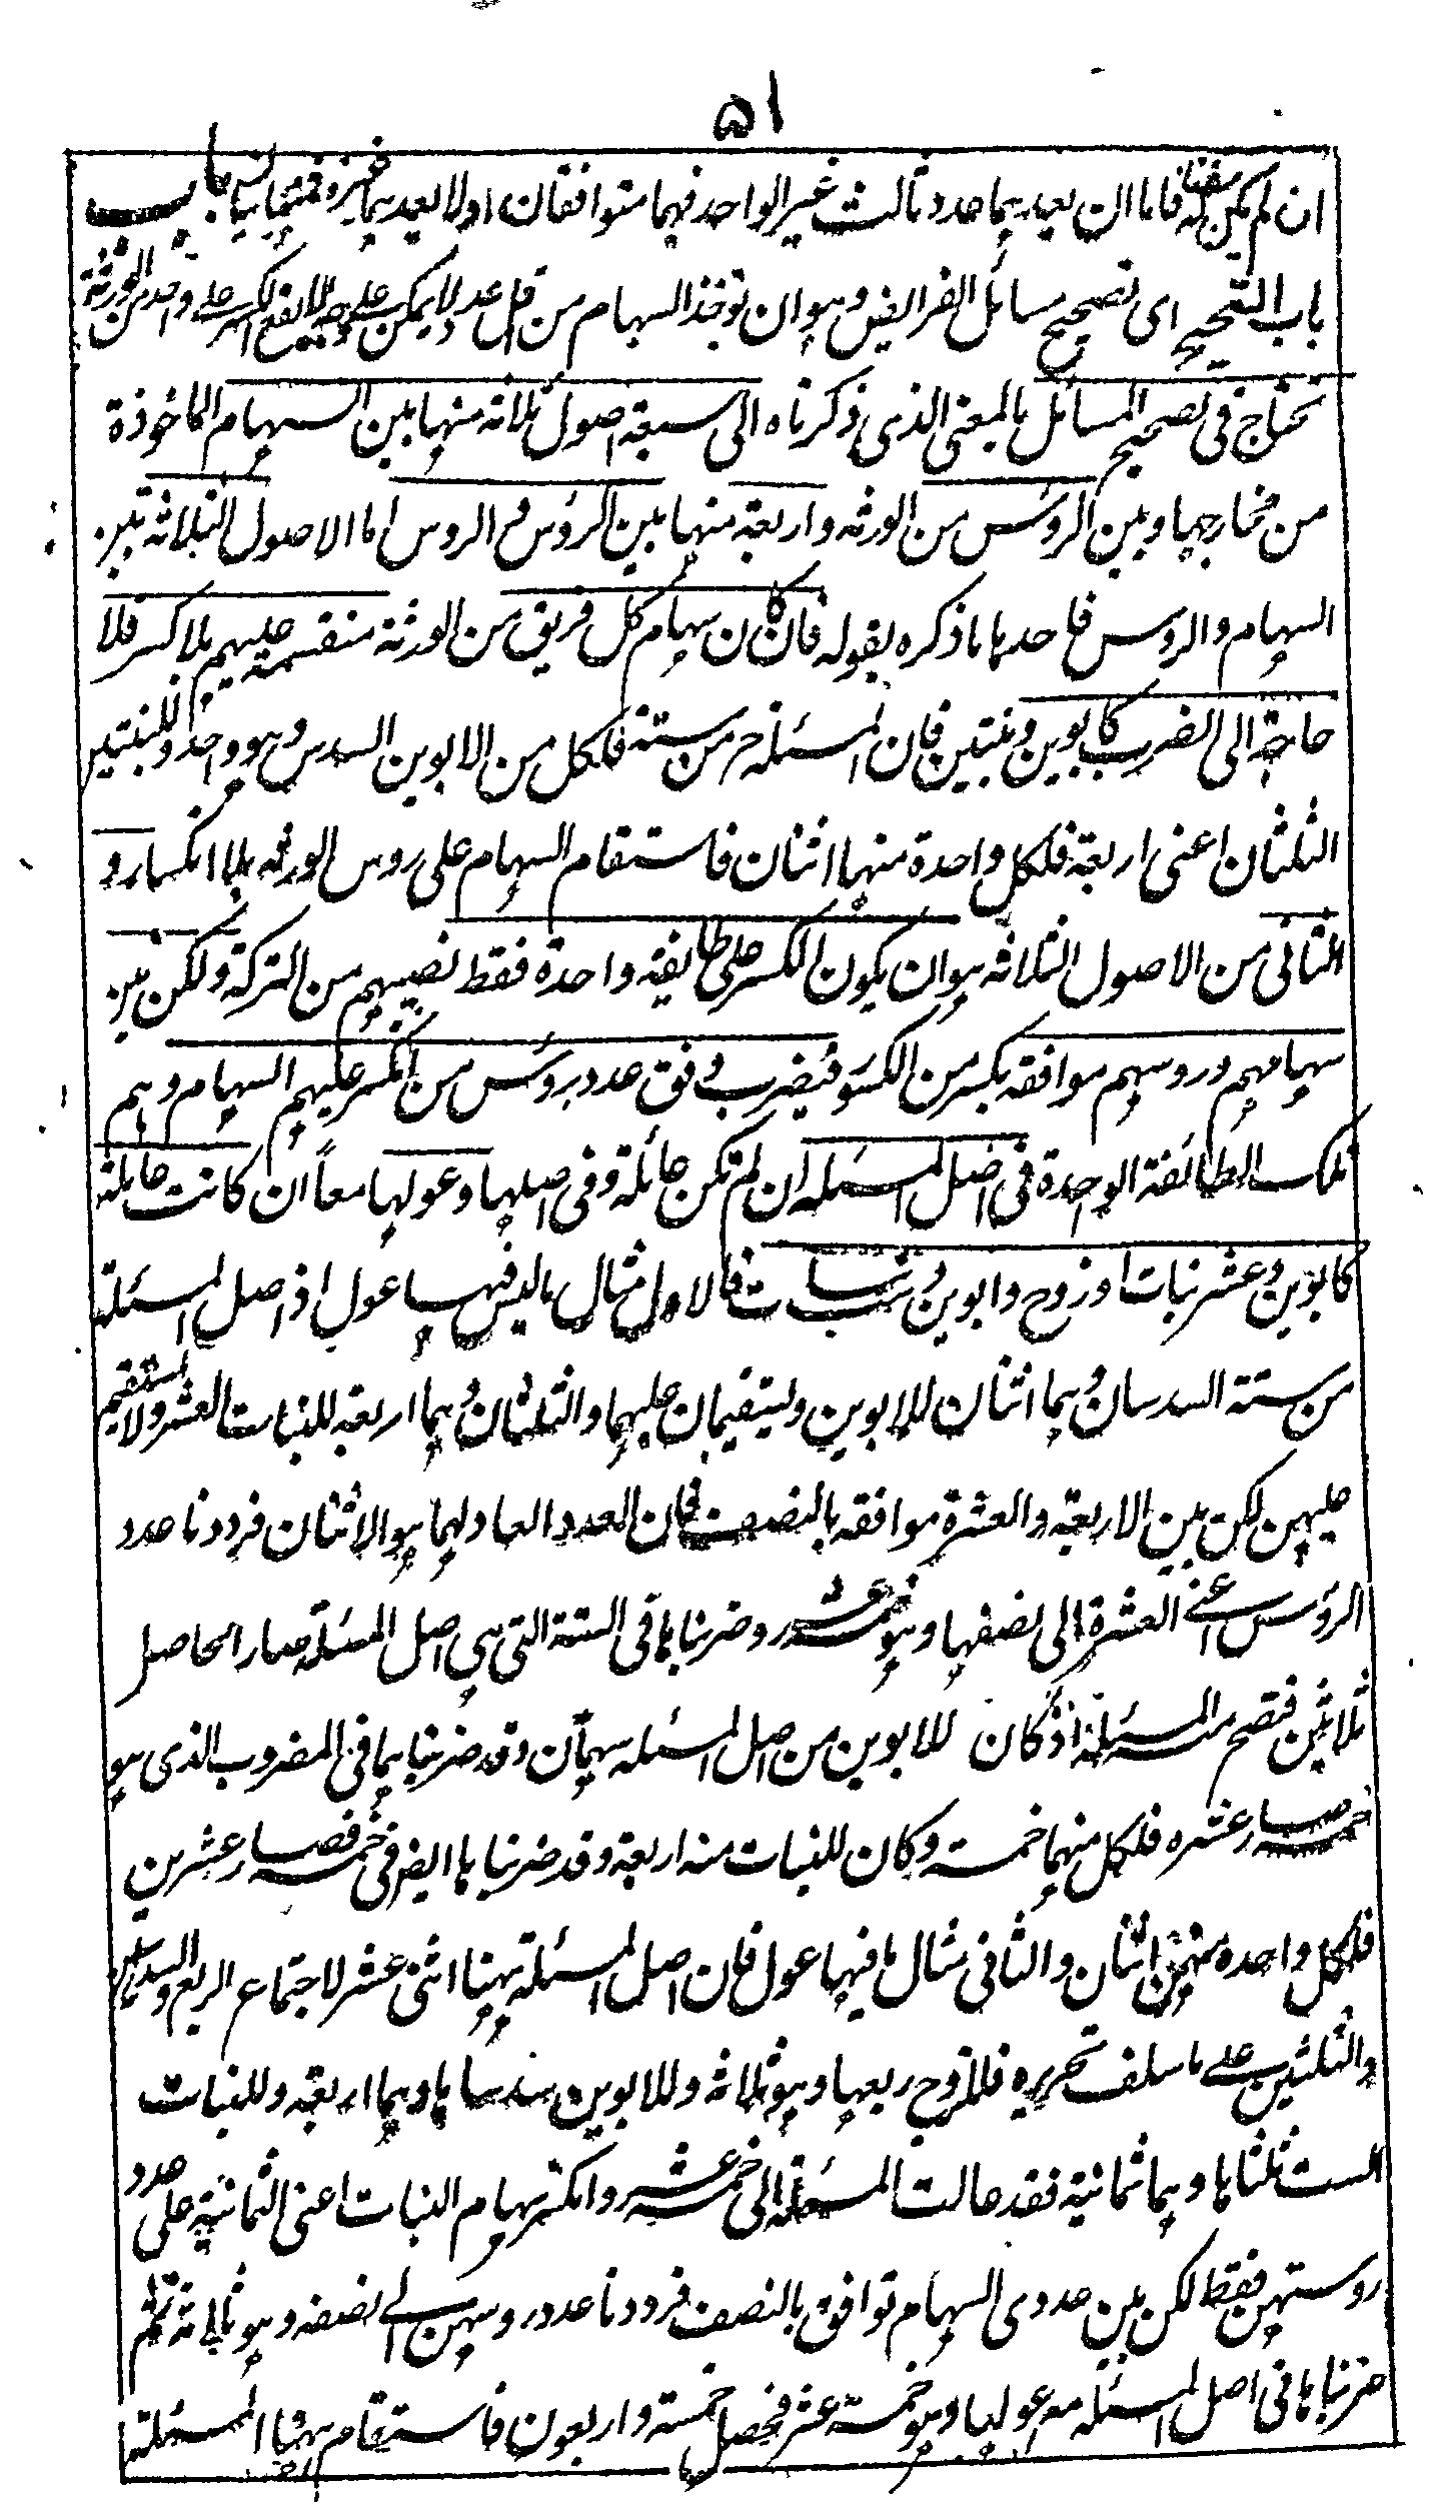 ٥١
ان لم يكن مفنيا له فاما ان يعدهما عدد ثالث غير الواحد فهما متوافقان اولا يعدهما فهما متباينان باب
باب التصحيح اى تصحيح مسائل الفرائض وهو ان توخذ السهام من اقل عدد لا يمكن على وجه لا يقع الكسر على واحد من الورثة
تحتاج فى تصحيح المسائل بالمعنى الذى ذكرناه الى سبعة اصول ثلاثة منها بين السهام الماخوذة
من مخارجها وبين الرؤس من الورثه واربعة منها بين الرؤس والروس اما الاصول الثلاثه بين
السهام والروس فاحدها ما ذكره بقوله فان كان سهام كل فريق من الورثة منقسمة عليهم بلا كسر فلا
حاجة الى الضرب كابوين وبنتين فان المسئلة ح من ستة فلكل من الابوين السدس وهو واحد وللبنتين
الثلثان اعنى اربعة فلكل واحدة منها اثنان فاستقام السهام على روس الورثه بلا انكسار و
الثانى من الاصول الثلاثه هو ان يكون الكسر على طايفة واحدة فقط نصيبهم من التركة ولكن بين
سهامهم وروسهم موافقه بكسر من الكسور فيضرب وفق عدد روس من انكسر عليهم السهام وهم
تلك الطائفة الواحدة فى اصل المسئله ان لم تكن عائلة وفى اصلها وعولها معاً ان كانت عايلة
كابوين وعشر بنات او زوج وابوين وست بنات فالاول مثال ما ليس فيها عول اذ اصل المسئلة
من ستة السدسان وهما اثنان للابوين ويستقيمان عليهما والثلثان وهما اربعة للبنات العشر ولا يستقيم
عليهن لكن بين الاربعة والعشرة موافقه بالنصف فان العدد العاد لهما هو الاثنان فرددنا عدد
الرؤس اعنى العشرة الى نصفها وهو خمسة وضربناها فى الستة التى هى اصل المسئلة صار الحاصل
ثلاثين فتصح منه المسئلة اذ كان للابوين من اصل المسئله سهمان وقد ضربناهما فى المضروب الذى هو
خمسة صار عشره فلكل منهما خمسة وكان للبنات منه اربعة وقد ضربناها ايضا فى خمسة فصار عشرين
فلكل واحده منهن اثنان والثانى مثال ما فيها عول فان اصل المسئلة ههنا اثنى عشر لاجتماع الربع والسدسين
والثلثين على ما سلف تحريره فللزوج ربعها وهو ثلاثه وللابوين سدساها وهما اربعة وللبنات
الست ثلثاها وهما ثمانية فقد عالت المسئلة الى خمسة عشر وانكسر سهام البنات اعنى الثمانية على عدد
روسهن فقط لكن بين عددى السهام توافق بالنصف فرددنا عدد روسهن الى نصفه وهو ثلاثة ثم
ضربناها فى اصل المسئله مع عولها وهو خمسة عشر فحصل خمسة واربعون فاستقام منها المسئلة